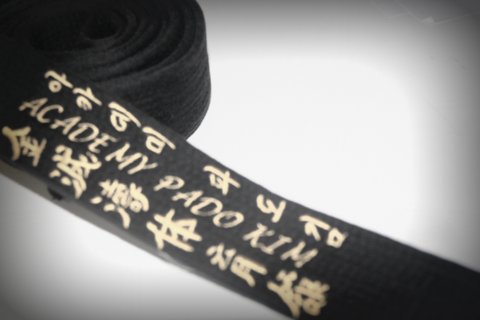 아카데미 파도 김
ACADEMY PADO KIM
金 濤 体 育